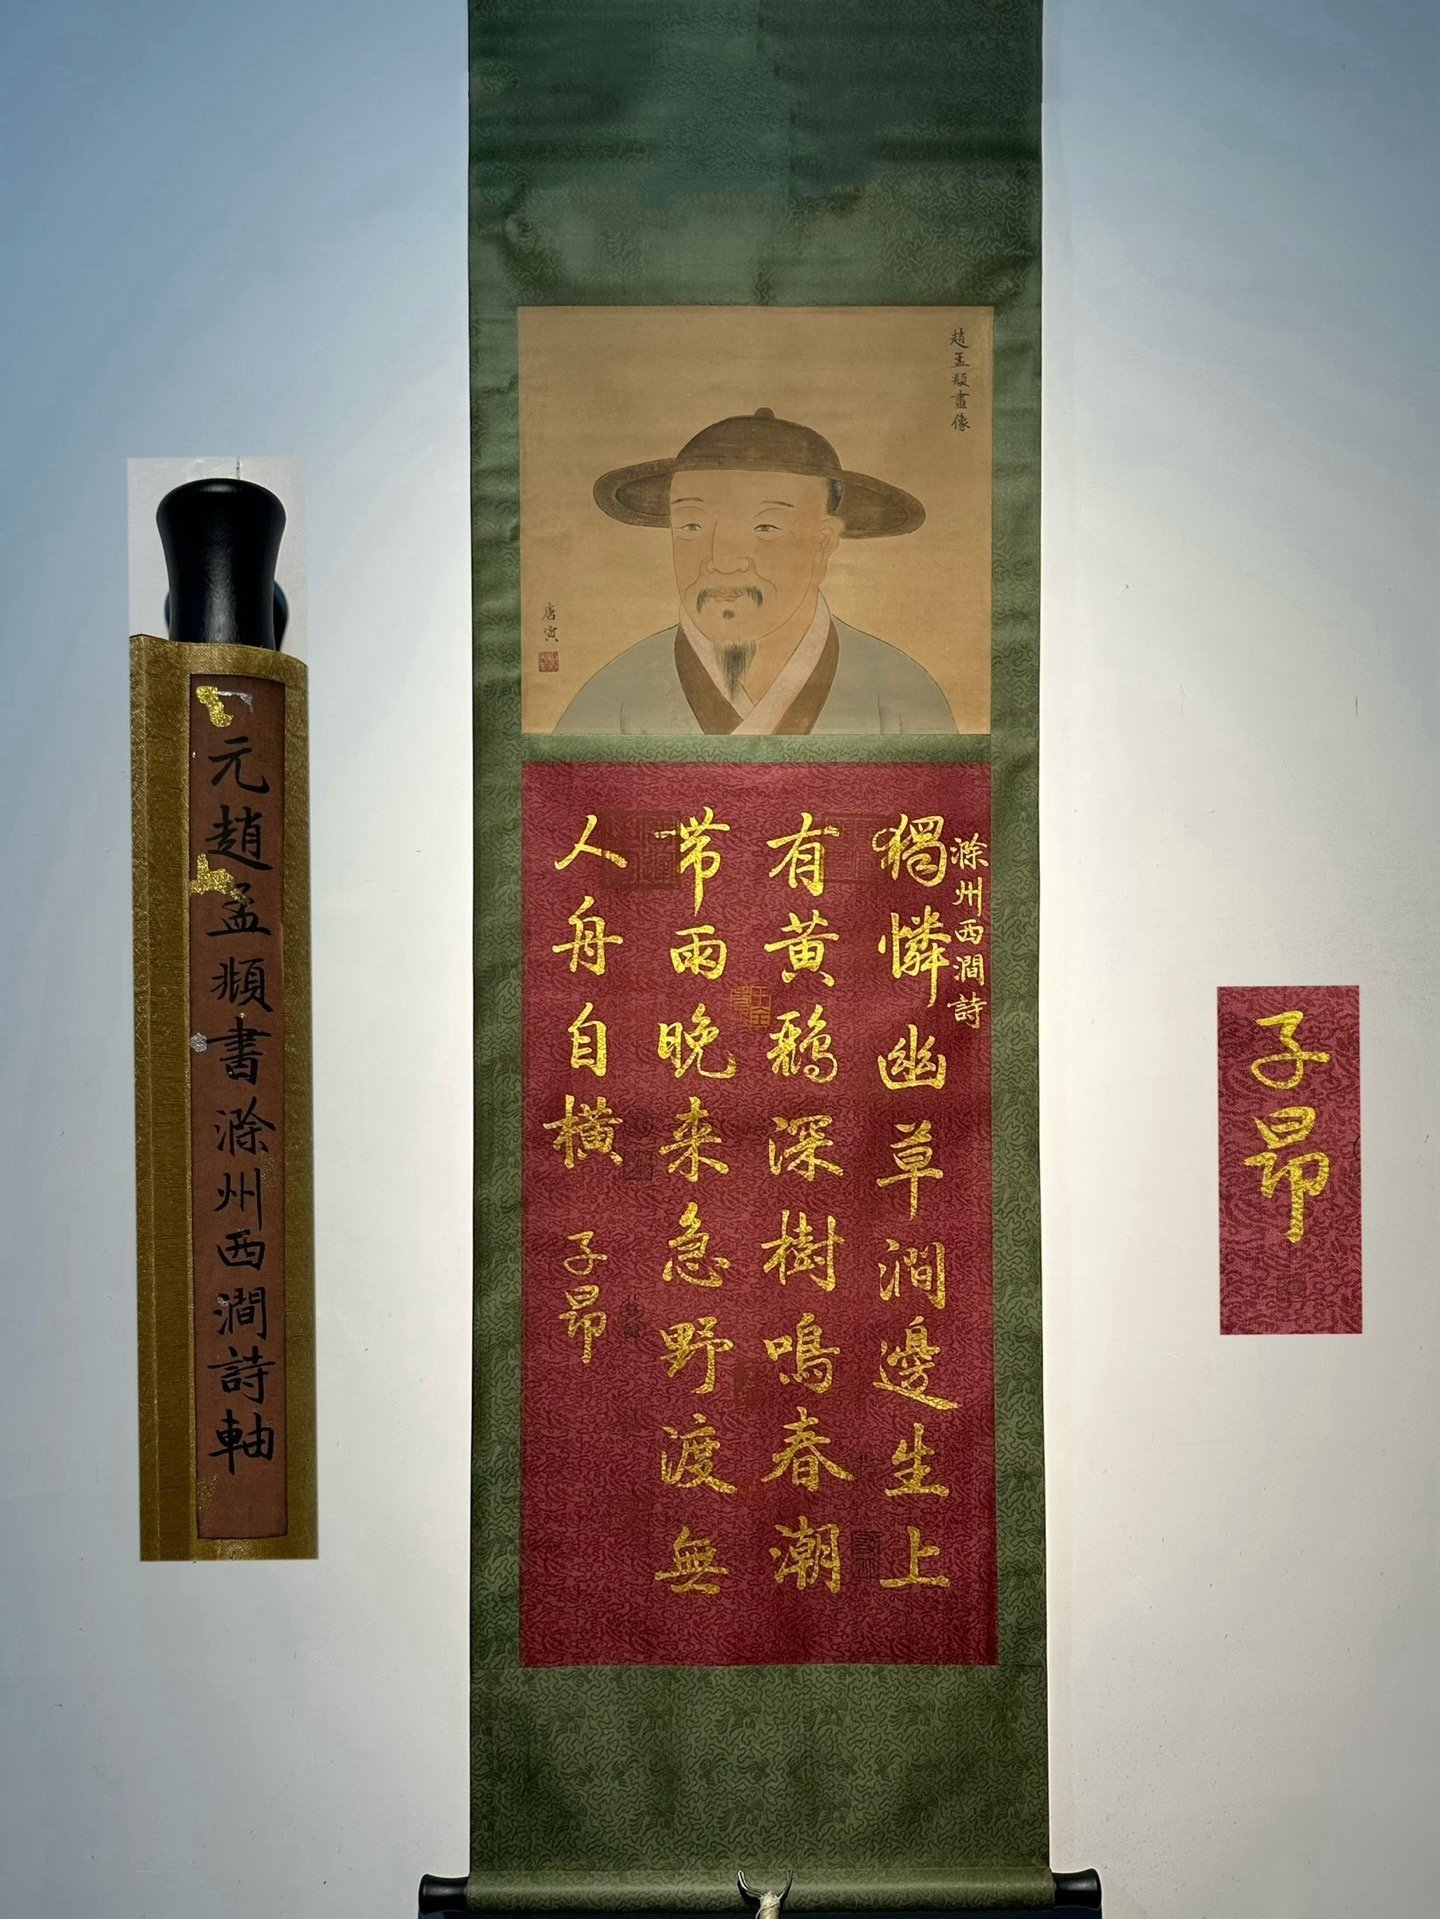 趙孟頫畫像
唐寅
滁州西澗詩
獨憐幽草澗邊生上
有黄鸝深樹鳴春潮
带雨晚来急野渡無
人舟自橫
子昂
元趙孟頫書滁州西澗詩軸
子昂